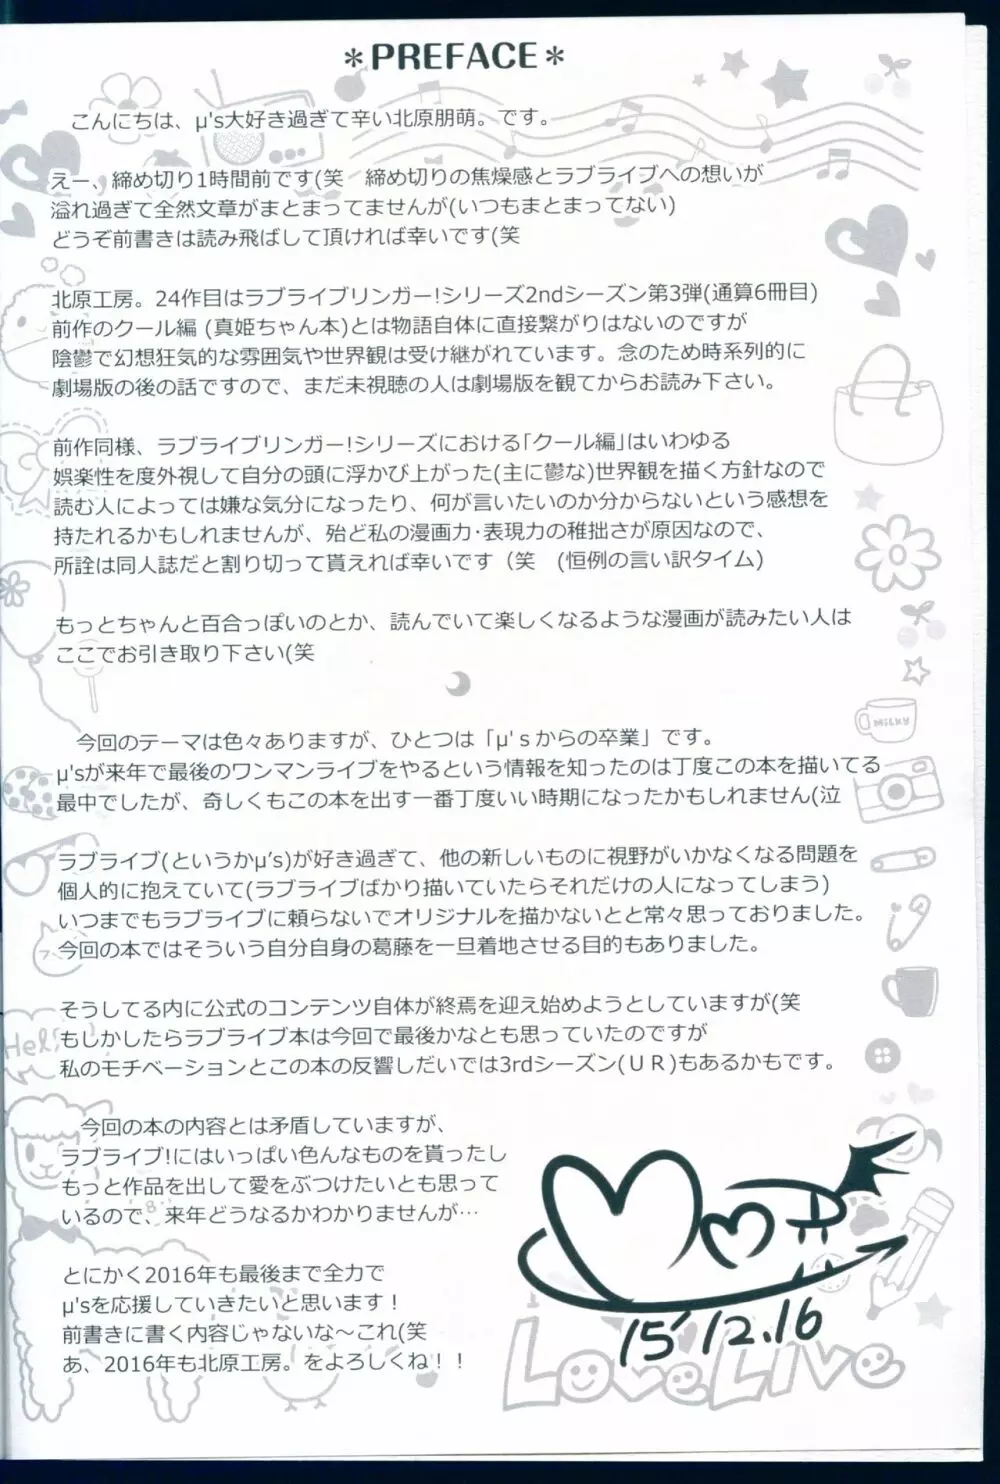 ＊PREFACE＊
こんにちは、μ's大好き過ぎて辛い北原朋萌。です。
えー、締め切り1時間前です(笑　締め切りの焦燥感とラブライブへの想いが
溢れ過ぎて全然文章がまとまってませんが(いつもまとまってない)
どうぞ前書きは読み飛ばして頂ければ幸いです(笑
北原工房。24作目はラブライブリンガー!シリーズ2ndシーズン第3弾(通算6冊目)
前作のクール編 (真姫ちゃん本)とは物語自体に直接繋がりはないのですが
陰鬱で幻想狂気的な雰囲気や世界観は受け継がれています。念のため時系列的に
劇場版の後の話ですので、まだ未視聴の人は劇場版を観てからお読み下さい。
前作同様、ラブライブリンガー!シリーズにおける「クール編」はいわゆる
娯楽性を度外視して自分の頭に浮かび上がった(主に鬱な)世界観を描く方針なので
読む人によっては嫌な気分になったり、何が言いたいのか分からないという感想を
持たれるかもしれませんが、殆ど私の漫画力・表現力の稚拙さが原因なので、
所詮は同人誌だと割り切って貰えれば幸いです（笑　(恒例の言い訳タイム)
もっとちゃんと百合っぽいのとか、読んでいて楽しくなるような漫画が読みたい人は
ここでお引き取り下さい(笑
今回のテーマは色々ありますが、ひとつは「μ'ｓからの卒業」です。
μ'sが来年で最後のワンマンライブをやるという情報を知ったのは丁度この本を描いてる
最中でしたが、奇しくもこの本を出す一番丁度いい時期になったかもしれません(泣
ラブライブ(というかμ's)が好き過ぎて、他の新しいものに視野がいかなくなる問題を
個人的に抱えていて(ラブライブばかり描いていたらそれだけの人になってしまう)
いつまでもラブライブに頼らないでオリジナルを描かないとと常々思っておりました。
今回の本ではそういう自分自身の葛藤を一旦着地させる目的もありました。
そうしてる内に公式のコンテンツ自体が終焉を迎え始めようとしていますが(笑
もしかしたらラブライブ本は今回で最後かなとも思っていたのですが
私のモチベーションとこの本の反響しだいでは3rdシーズン(ＵＲ)もあるかもです。
今回の本の内容とは矛盾していますが、
ラブライブ!にはいっぱい色んなものを貰ったし
もっと作品を出して愛をぶつけたいとも思って
いるので、来年どうなるかわかりませんが…
とにかく2016年も最後まで全力で
μ'sを応援していきたいと思います！
前書きに書く内容じゃないな～これ(笑
あ、2016年も北原工房。をよろしくね！！
15'12.16
LoveLive
MILKY
Hello